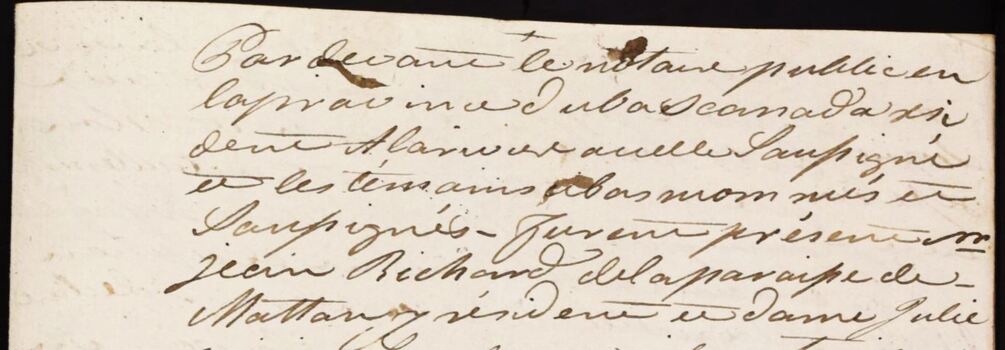 Pardevant le notaire public en
la province du bas canada rési
dent A la rivier ouelle Sousigné
et les témoains cibas nommés et
Sousignés - furent présent mr
jean Richard de la paraisse de -
Mattan y résident et dame Julie